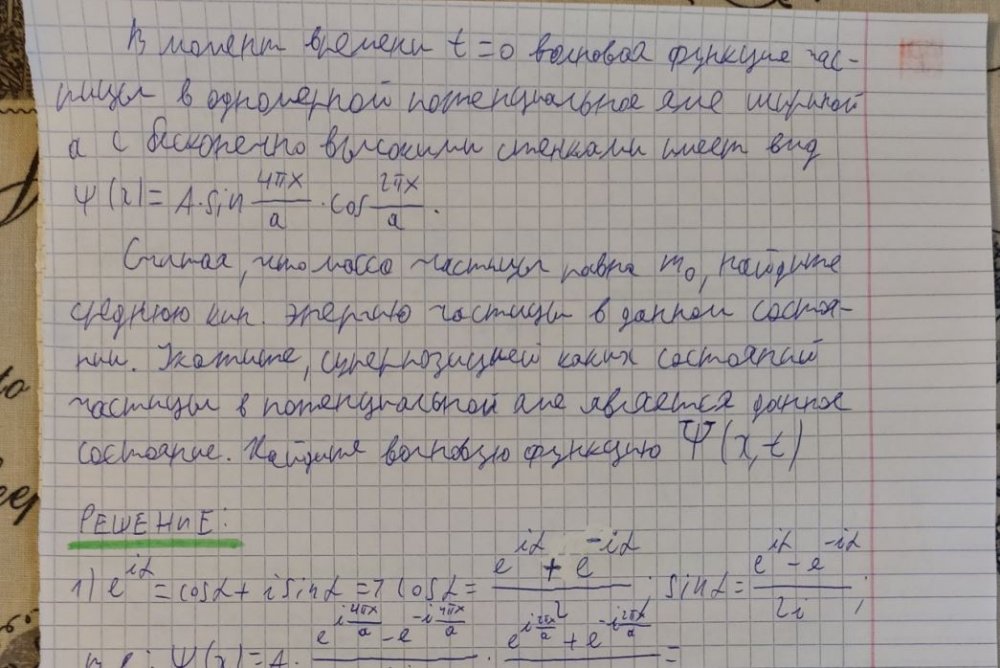 В момент времени t=0 волновая функция час-
тицы в одномерной потенциальное яме шириной
a с бесконечно высокими стенками имеет вид
Ψ(x)= A·sin 4πx/a · cos 2πx/a.
Считая, что масса частицы равна m₀, найдите
среднюю кин. энергию частицы в данном состоя-
нии. Укажите, суперпозицией каких состояний
частицы в потенциальной яме является данное
состояние. Найдите волновую функцию Ψ(x,t)
РЕШЕНИЕ:
1) e^{iα} = cosα + i sinα => cosα = (e^{iα} + e^{-iα})/2; sinα = (e^{iα} - e^{-iα})/2i;
т.е.: Ψ(x)=A· (e^{i4πx/a} - e^{-i4πx/a}) · (e^{i2πx/a} + e^{-i2πx/a}) =